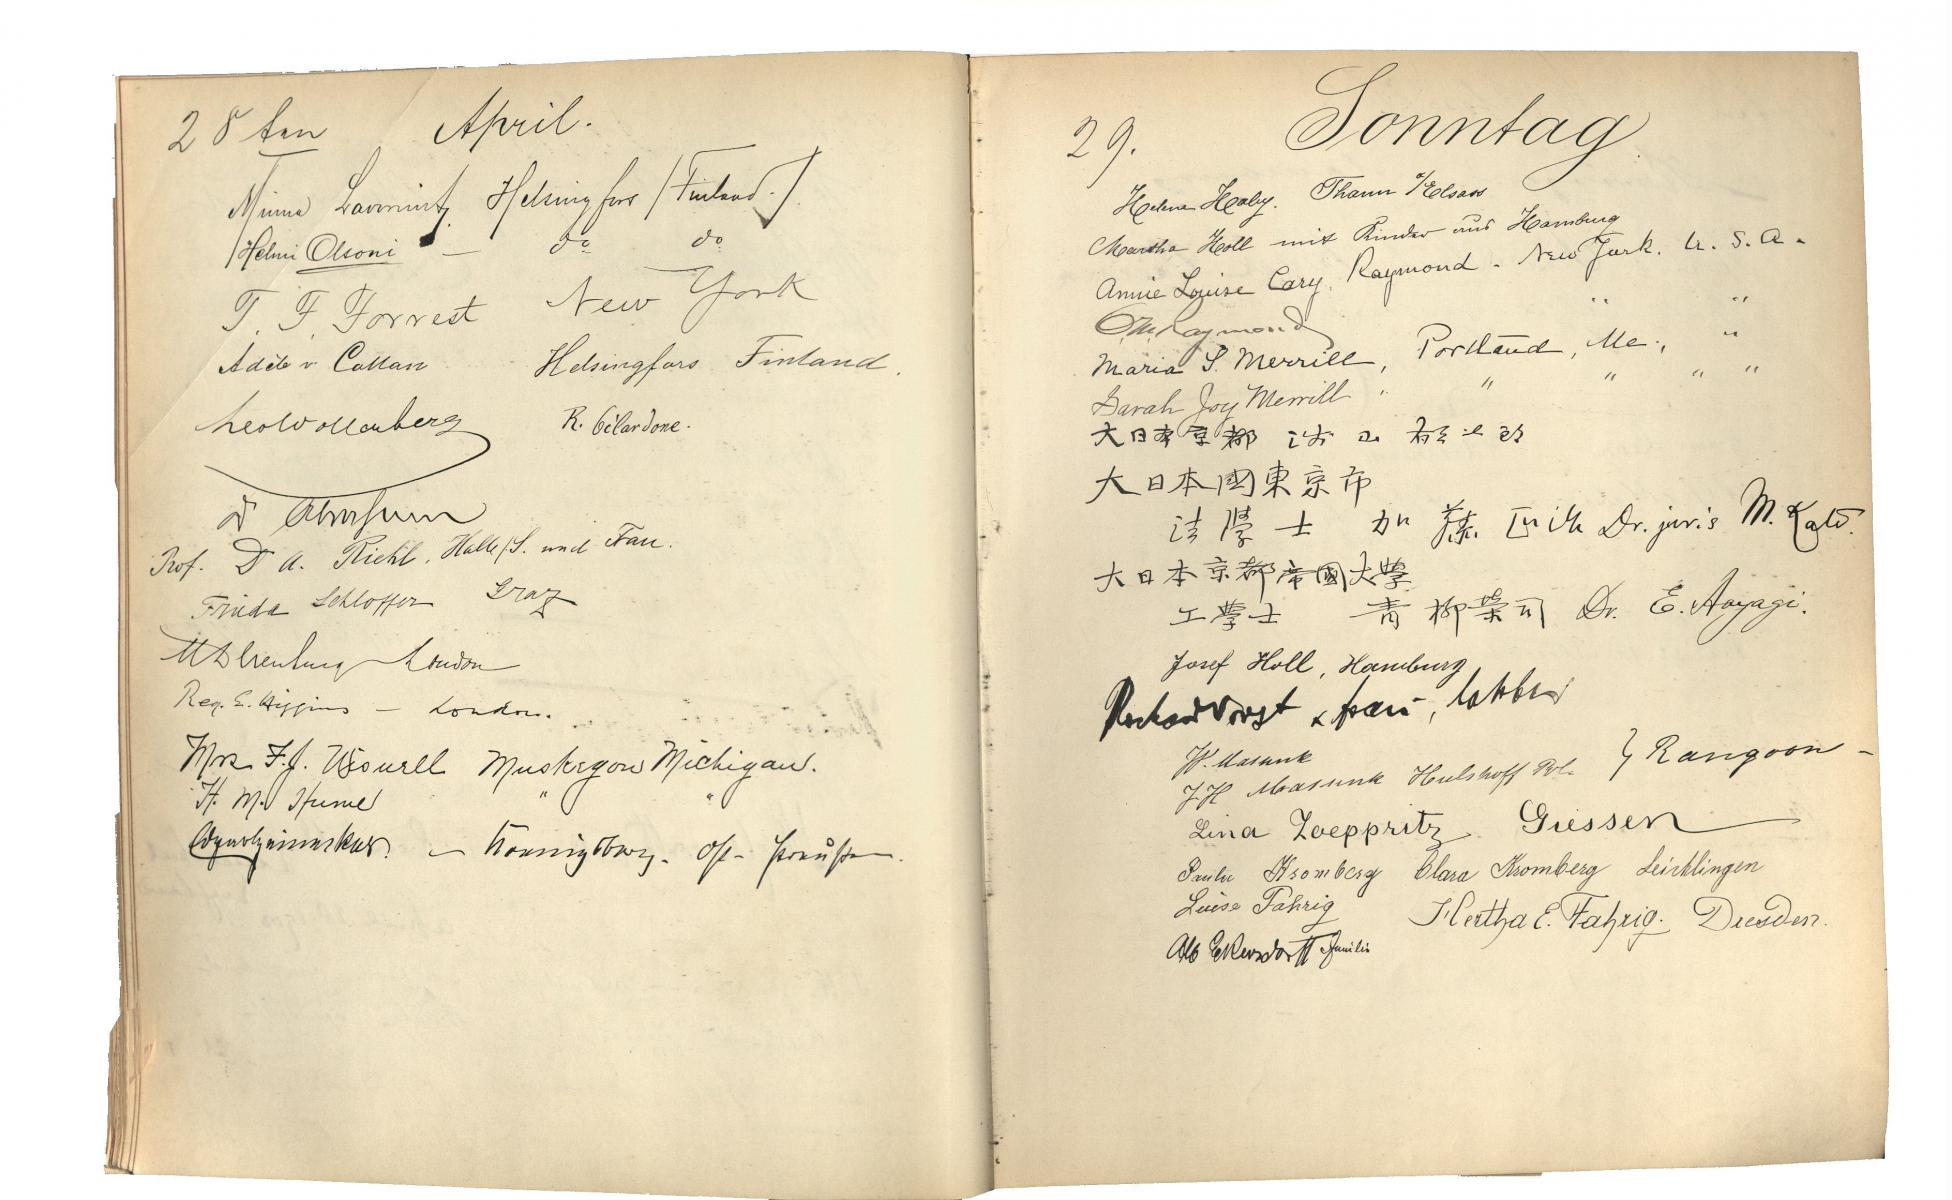 28ten April.
Minna Helsingfors (Finland.)
(Helmi Olsoni — do do
T. F. Forrest New York
Adèle v Helsingfors Finland.
Leo Wollemberg R. Gilardone.
Dr
Prof. Dr A. Riehl, Halle/S. und Frau.
Frieda Schloffer Graz
London
Reg. E. Higgins — London.
Mrs. F. J. Muskegon Michigan.
H. M. Hume " "
— Koenigsberg. Ost-Preußen.
29. Sonntag
Helene Haby. Thann i/Elsass
Martha Holl mit Kinder aus Hamburg
Annie Louise Cary, Raymond - New York. U. S. A.
C. M. Raymond " "
Maria S. Merrill, Portland, Me., "
Sarah Joy Merrill " " " " "
大日本京都
大日本國東京市
法學士 加藤正治 Dr. juris M. Kato.
大日本京都帝國大學
工學士 青柳榮司 Dr. E. Aoyagi.
Josef Holl, Hamburg
Richard Vorst & Frau,
W. Masunk
J H Masunk Hulshoff Pol. } Rangoon —
Lina Zoeppritz Giessen
Paula Kromberg Clara Kromberg Leichlingen
Luise Fahrig Hertha E. Fahrig. Dresden.
Alb Eckersdorff Familie